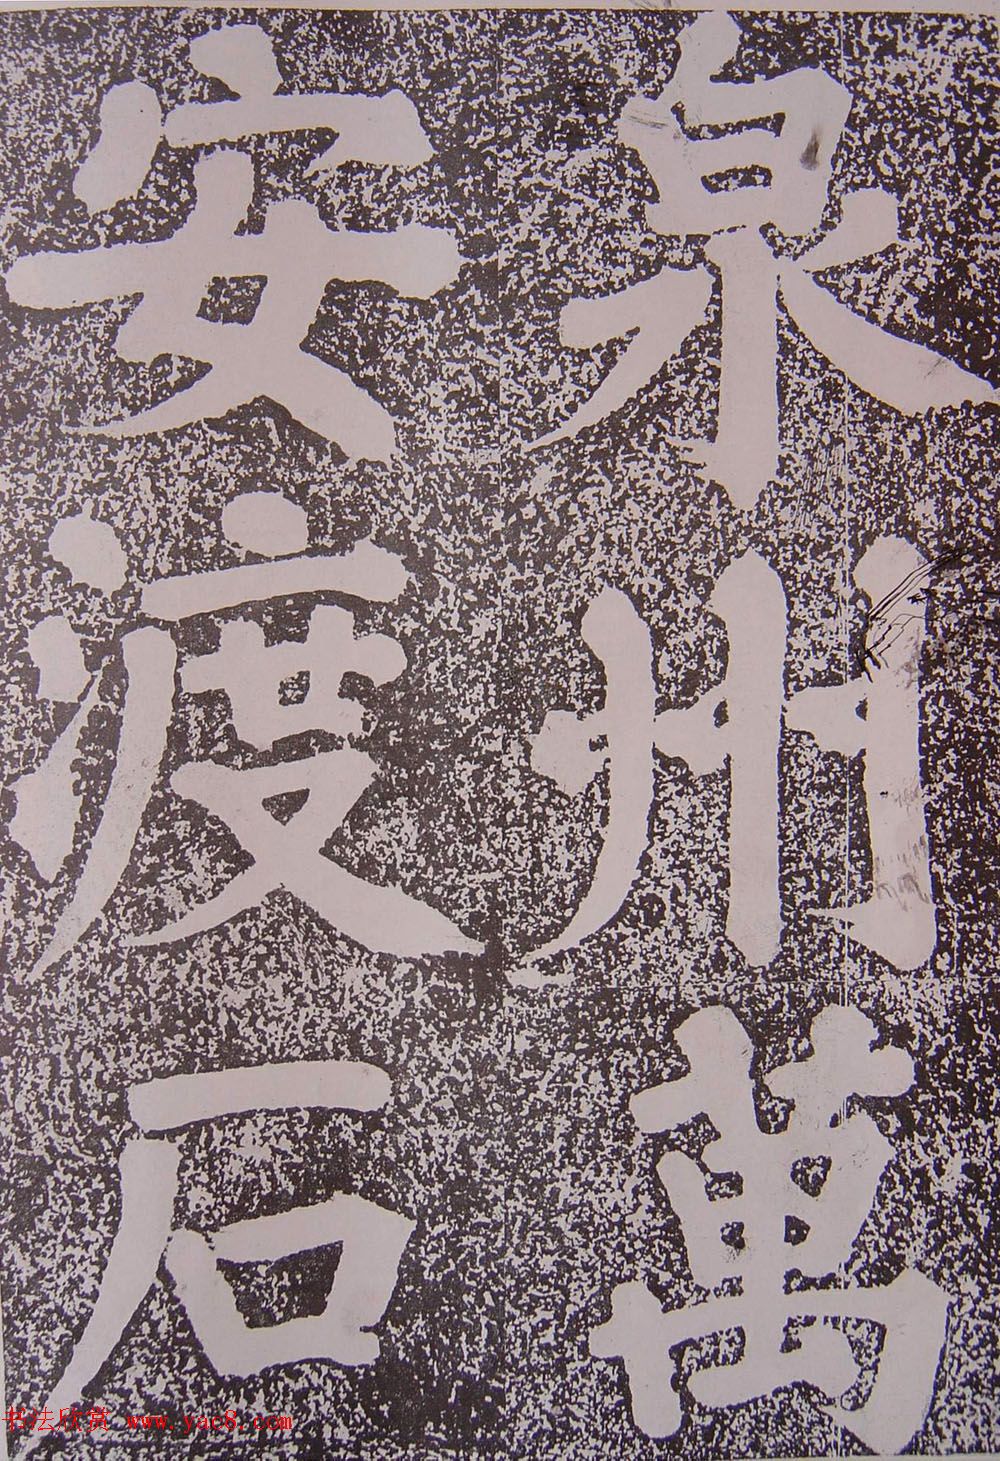 泉州萬
安渡石
书法欣赏 www.yac8.com